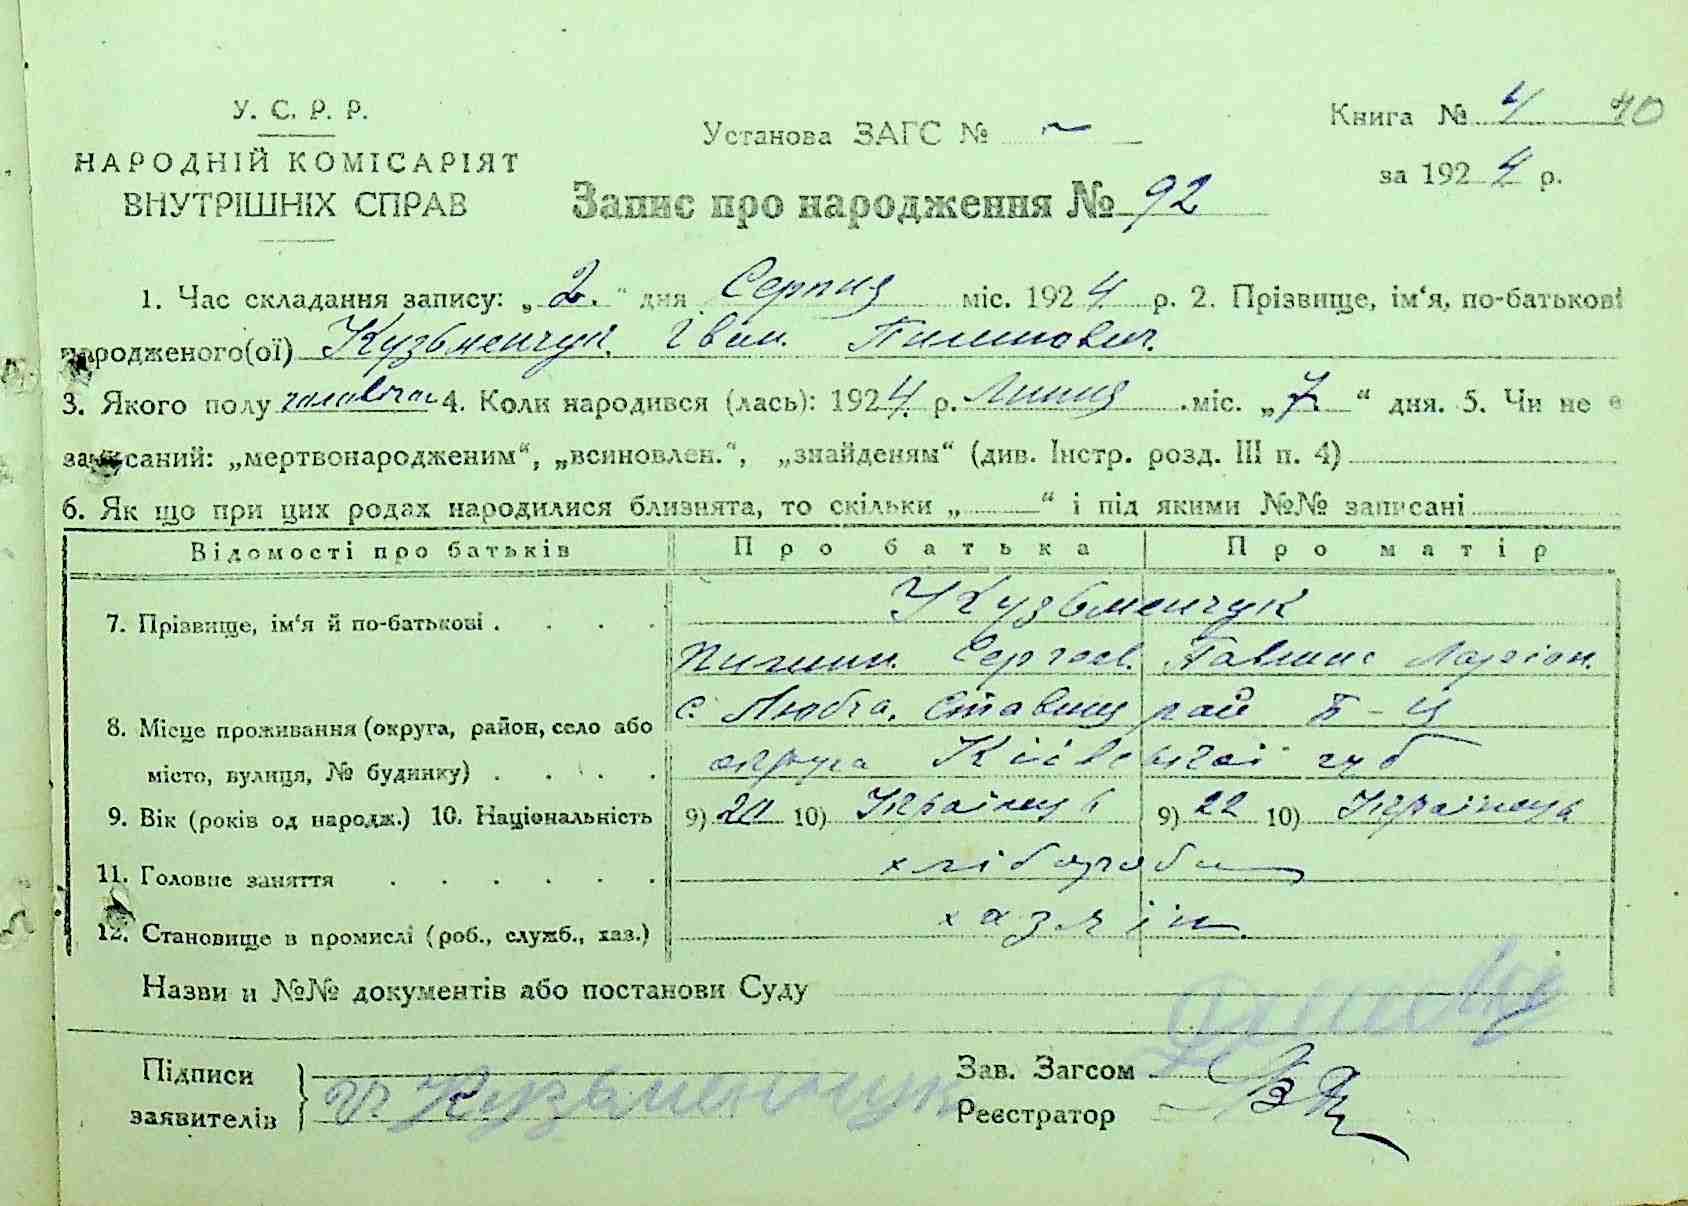 У. С. Р. Р.
НАРОДНІЙ КОМІСАРІЯТ
ВНУТРІШНІХ СПРАВ
Установа ЗАГС № —
Книга № 4 40
за 1924 р.
Запис про народження № 92
1. Час складання запису: „2.“ дня Серпня міс. 1924 р. 2. Прізвище, ім‘я, по-батькові
народженого(ої) Кузьменчук Іван. Пилипович.
3. Якого полу чоловічої 4. Коли народився (лась): 1924 р. Липня міс. „7“ дня. 5. Чи не є
записаний: „мертвонародженим“, „всиновлен.“, „знайденям“ (див. Інстр. розд. III п. 4)
6. Як що при цих родах народилися близнята, то скільки „ “ і під якими №№ записані
Відомості про батьків Про батька Про матір
7. Прізвище, ім‘я й по-батькові . . . . Кузьменчук
Пилип. Сергеев. Павлина Ларіон.
8. Місце проживання (округа, район, село або с. Любча, Ставищ рай Б-Ц
місто, вулиця, № будинку) . . . . округа Київської губ
9. Вік (років од народж.) 10. Національність 9) 20 10) Українець 9) 22 10) Українець
11. Головне заняття . . . . . . хлібороби
12. Становище в промислі (роб., служб., хаз.) хазяїн
Назви и №№ документів або постанови Суду
Підписи
заявителів } Кузьменчук
Зав. Загсом
Реєстратор